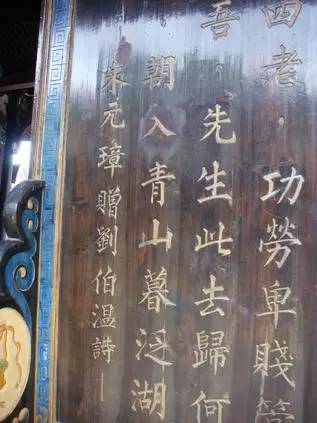 四老，功勞卑賤管
吾。先生此去歸何
朝入青山暮泛湖
朱元璋贈劉伯溫詩